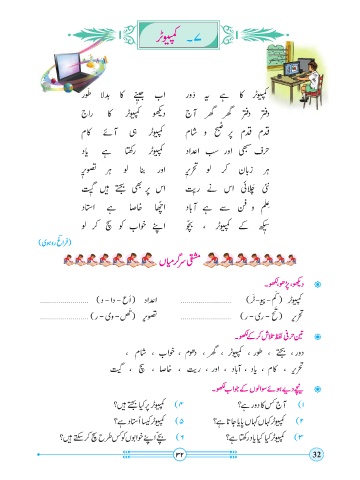 ۷۔ کمپیوٹر
کمپیوٹر کا ہے یہ دَور اب جینے کا بدلا طور
دفتر دفتر گھر گھر آج دیکھو کمپیوٹر کا راج
قدم قدم پر صُبح و شام کمپیوٹر ہی آئے کام
حرف سبھی اور سب اعداد کمپیوٹر رکھتا ہے یاد
ہر زبان کر لو تحریر اور بنا لو ہر تصویر
نئی چلائی اس نے ریت اس پر بھی بجتے ہیں گیت
علم و فن سے ہے آباد اچھا خاصا ہے استاد
سیکھ کے کمپیوٹر ، بچّو اپنے خواب کو سچ کر لو
(فراغ روہوی)
مشقی سرگرمیاں
دیکھو، پڑھو، لکھو۔
کمپیوٹر (کم - پیو - ٹر) .................... اعداد (اع - دا - د) ....................
تحریر (تح - ری - ر) .................... تصویر (تص - وی - ر) ....................
تین حرفی لفظ تلاش کر کے لکھو۔
دور ، بجتے ، طور ، کمپیوٹر ، گھر ، دھوم ، خواب ، شام ،
تحریر ، کام ، یاد ، آباد ، اور ، ریت ، خاصا ، سچ ، گیت
نیچے دیے ہوئے سوالوں کے جواب لکھو۔
۱) آج کس کا دور ہے؟ ۴) کمپیوٹر پر کیا بجتے ہیں؟
۲) کمپیوٹر کہاں کہاں پایا جاتا ہے؟ ۵) کمپیوٹر کیسا استاد ہے؟
۳) کمپیوٹر کیا کیا یاد رکھتا ہے؟ ۶) بچے اپنے خوابوں کو کس طرح سچ کر سکتے ہیں؟
۳۲
32